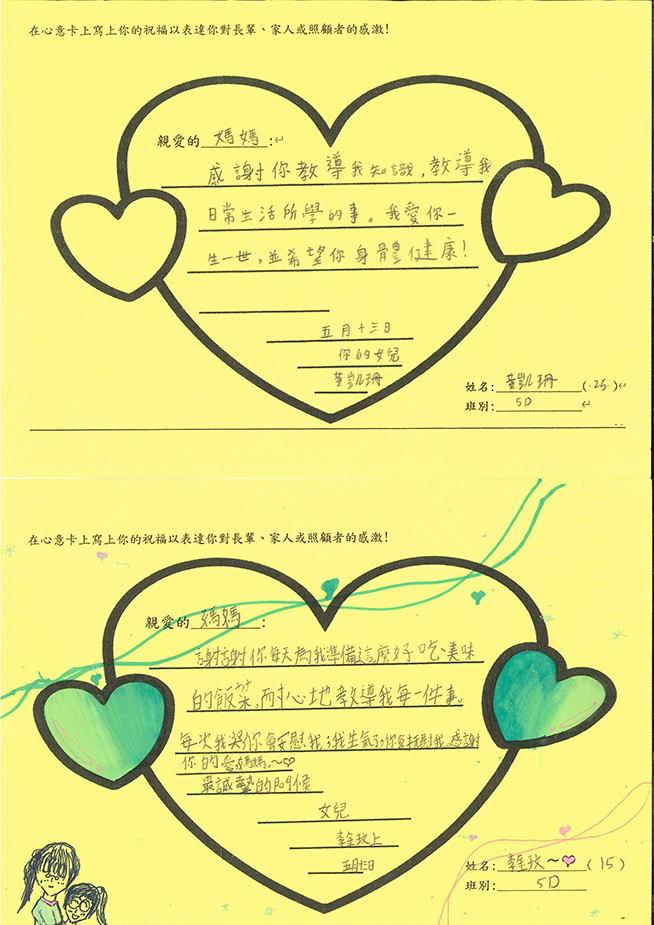 在心意卡上寫上你的祝福以表達你對長輩、家人或照顧者的感激!
親愛的 媽媽 :
感謝你教導我知識,教導我
日常生活所學的事。我愛你一
生一世,並希望你身體健康!
五月十三日
你的女兒
黃凱珊
姓名: 黃凱珊 (25)
班別: 5D
在心意卡上寫上你的祝福以表達你對長輩、家人或照顧者的感激!
親愛的 媽媽 :
謝謝你每天為我準備這麼好吃、美味
的飯菜。耐心地教導我每一件事。
每次我 你會安慰我;我生氣 你 我。感謝
你的愛媽媽。~♡
最誠摯的問候
女兒
玫上
五月 日
姓名: 玫~♥ (15)
班別: 5D